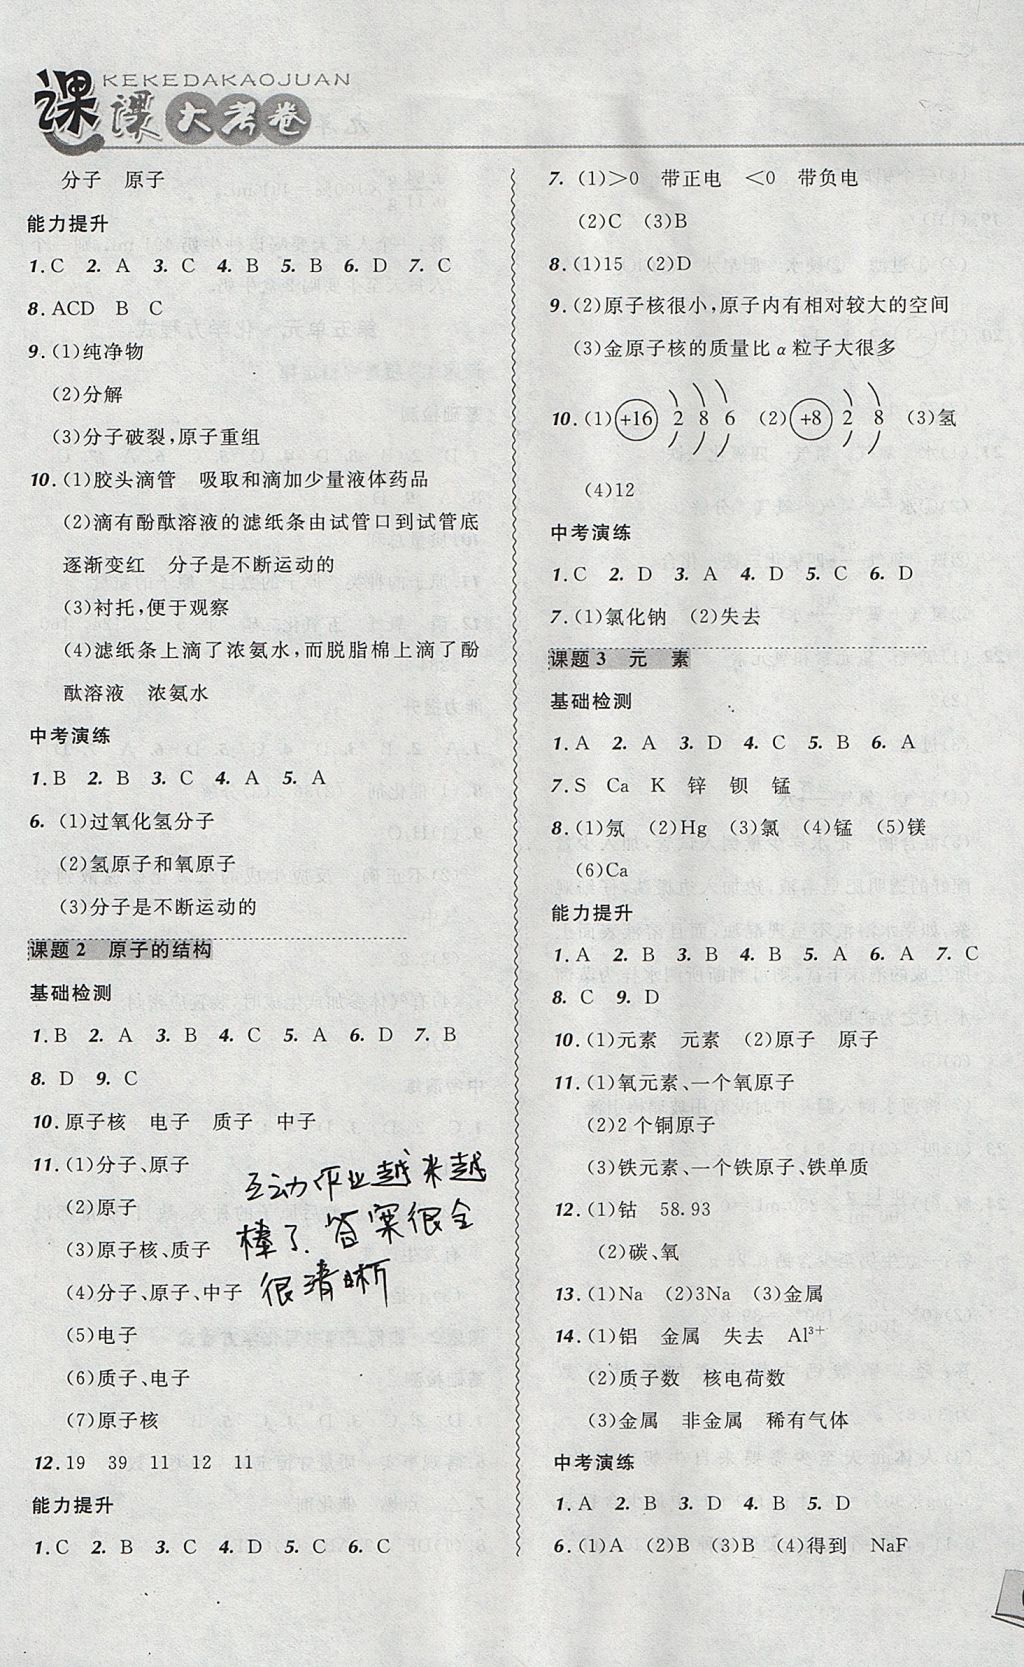 KEKEDAKAOJUAN
课课大考卷
分子 原子
能力提升
1.C 2.A 3.C 4.B 5.B 6.D 7.C
8.ACD B C
9.(1)纯净物
(2)分解
(3)分子破裂,原子重组
10.(1)胶头滴管 吸取和滴加少量液体药品
(2)滴有酚酞溶液的滤纸条由试管口到试管底
逐渐变红 分子是不断运动的
(3)衬托,便于观察
(4)滤纸条上滴了浓氨水,而脱脂棉上滴了酚
酞溶液 浓氨水
中考演练
1.B 2.B 3.C 4.A 5.A
6.(1)过氧化氢分子
(2)氢原子和氧原子
(3)分子是不断运动的
课题2 原子的结构
基础检测
1.B 2.A 3.B 4.C 5.A 6.D 7.B
8.D 9.C
10.原子核 电子 质子 中子
11.(1)分子、原子
(2)原子
(3)原子核、质子
(4)分子、原子、中子
(5)电子
(6)质子、电子
(7)原子核
互动作业越来越
棒了.答案很全
很清晰
12.19 39 11 12 11
能力提升
1.C 2.B 3.C 4.D 5.C 6.C
7.(1)>0 带正电 <0 带负电
(2)C (3)B
8.(1)15 (2)D
9.(2)原子核很小,原子内有相对较大的空间
(3)金原子核的质量比α粒子大很多
10.(1)+16 2 8 6 (2)+8 2 8 (3)氢
(4)12
中考演练
1.C 2.D 3.A 4.D 5.C 6.D
7.(1)氯化钠 (2)失去
课题3 元 素
基础检测
1.A 2.A 3.D 4.C 5.B 6.A
7.S Ca K 锌 钡 锰
8.(1)氖 (2)Hg (3)氯 (4)锰 (5)镁
(6)Ca
能力提升
1.A 2.B 3.B 4.B 5.A 6.A 7.C
8.C 9.D
10.(1)元素 元素 (2)原子 原子
11.(1)氧元素、一个氧原子
(2)2个铜原子
(3)铁元素、一个铁原子、铁单质
12.(1)钴 58.93
(2)碳、氧
13.(1)Na (2)3Na (3)金属
14.(1)铝 金属 失去 Al³⁺
(2)质子数 核电荷数
(3)金属 非金属 稀有气体
中考演练
1.A 2.B 3.D 4.B 5.D
6.(1)A (2)B (3)B (4)得到 NaF